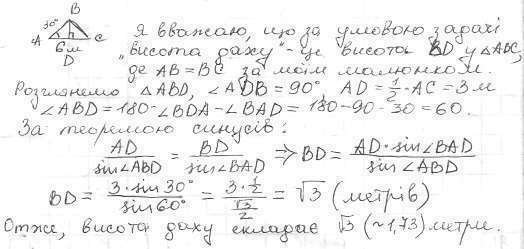 B
30°
A
C
6 м
D
Я вважаю, що за умовою задачі
"висота даху" - це висота BD у △ABC,
де AB = BC за моїм малюнком.
Розглянемо △ABD, ∠ADB = 90°, AD = 1/2 · AC = 3 м
∠ABD = 180 - ∠BDA - ∠BAD = 180 - 90 - 30 = 60.
За теоремою синусів:
AD/sin∠ABD = BD/sin∠BAD ⇒ BD = AD · sin∠BAD/sin∠ABD
BD = 3 · sin 30°/sin 60° = 3 · 1/2/√3/2 = √3 (метрів)
Отже, висота даху складає √3 (~1,73) метри.